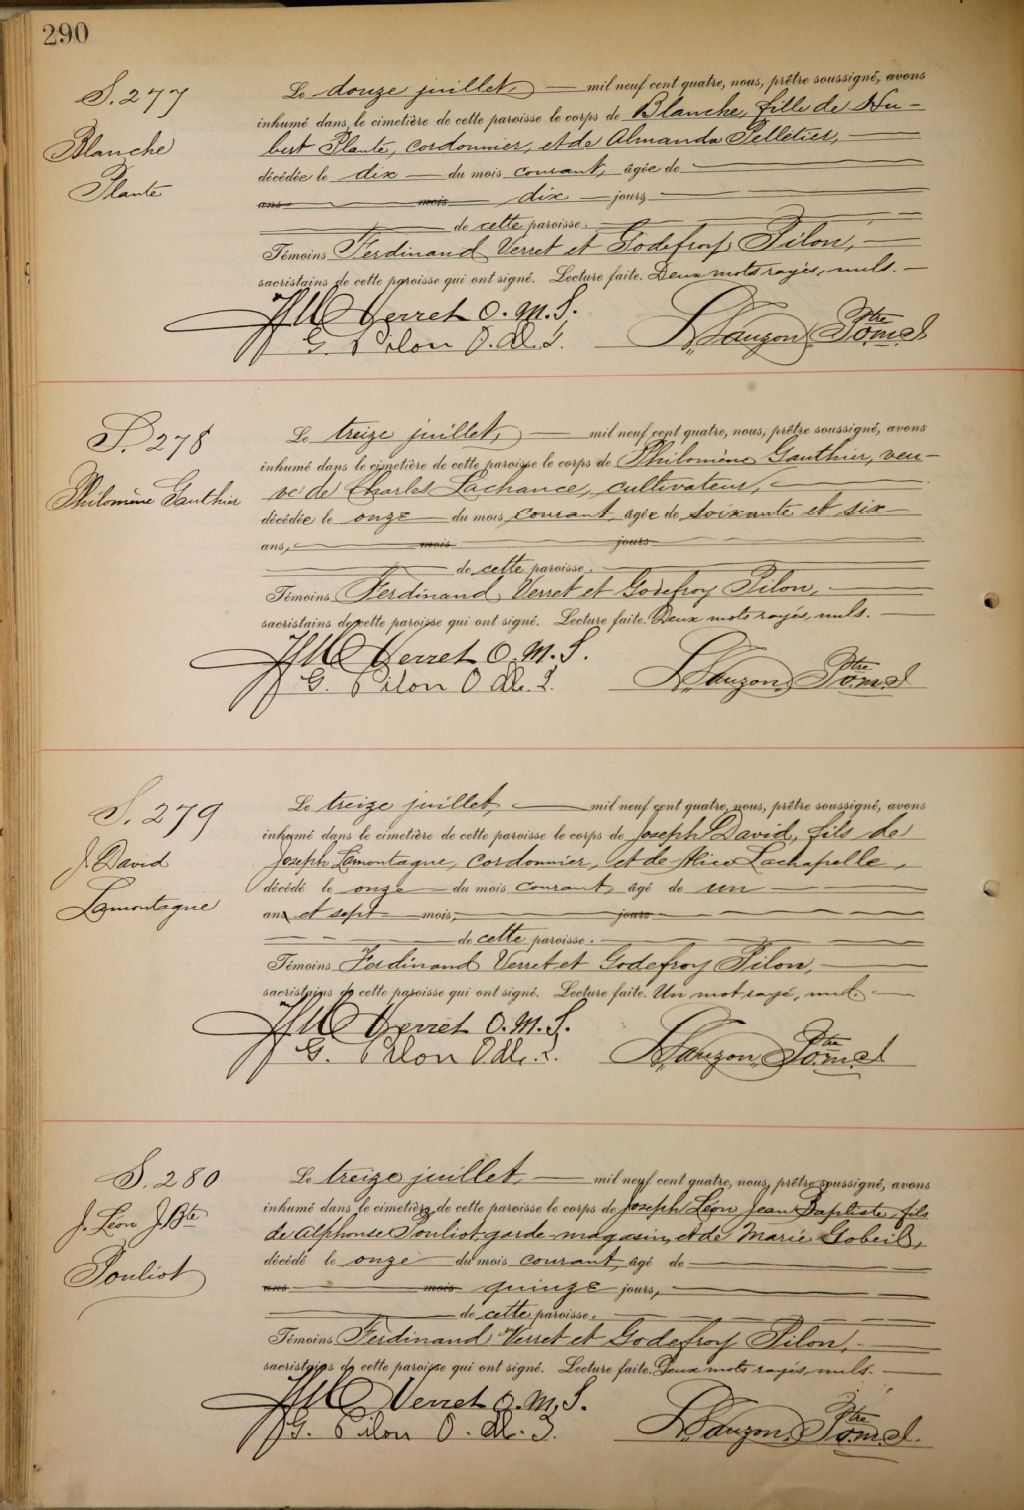 290
S. 277
Blanche
Plante
Le douze juillet, mil neuf cent quatre, nous, prêtre soussigné, avons
inhumé dans le cimetière de cette paroisse le corps de Blanche, fille de Hu-
bert Plante, cordonnier, et de Almanda Pelletier,
décédée le dix du mois courant, âgée de
ans mois dix jours,
de cette paroisse.
Témoins Ferdinand Verret et Godefroy Pilon,
sacristains de cette paroisse qui ont signé. Lecture faite. Deux mots rayés, nuls.
Verret O.M.I.
G. Pilon O.M.I.
Lauzon, Ptre O.M.I.
S. 278
Philomène Gauthier
Le treize juillet, mil neuf cent quatre, nous, prêtre soussigné, avons
inhumé dans le cimetière de cette paroisse le corps de Philomène Gauthier, veu-
ve de Charles Lachance, cultivateur,
décédée le onze du mois courant, âgée de soixante et six
ans, mois jours
de cette paroisse.
Témoins Ferdinand Verret et Godefroy Pilon,
sacristains de cette paroisse qui ont signé. Lecture faite. Deux mots rayés, nuls.
Verret O.M.I.
G. Pilon O.M.I.
Lauzon, Ptre O.M.I.
S. 279
J. David
Lamontagne
Le treize juillet, mil neuf cent quatre, nous, prêtre soussigné, avons
inhumé dans le cimetière de cette paroisse le corps de Joseph David, fils de
Joseph Lamontagne, cordonnier, et de Alice Lachapelle,
décédé le onze du mois courant, âgé de un
an et sept mois, jours
de cette paroisse.
Témoins Ferdinand Verret et Godefroy Pilon,
sacristains de cette paroisse qui ont signé. Lecture faite. Un mot rayé, nul.
Verret O.M.I.
G. Pilon O.M.I.
Lauzon, Ptre O.M.I.
S. 280
J. Léon J. Bte
Pouliot
Le treize juillet, mil neuf cent quatre, nous, prêtre soussigné, avons
inhumé dans le cimetière de cette paroisse le corps de Joseph Léon Jean Baptiste, fils
de Alphonse Pouliot, garde-magasin, et de Marie Gobeil,
décédé le onze du mois courant, âgé de
ans mois quinze jours,
de cette paroisse.
Témoins Ferdinand Verret et Godefroy Pilon,
sacristains de cette paroisse qui ont signé. Lecture faite. Deux mots rayés, nuls.
Verret O.M.I.
G. Pilon O.M.I.
Lauzon, Ptre O.M.I.